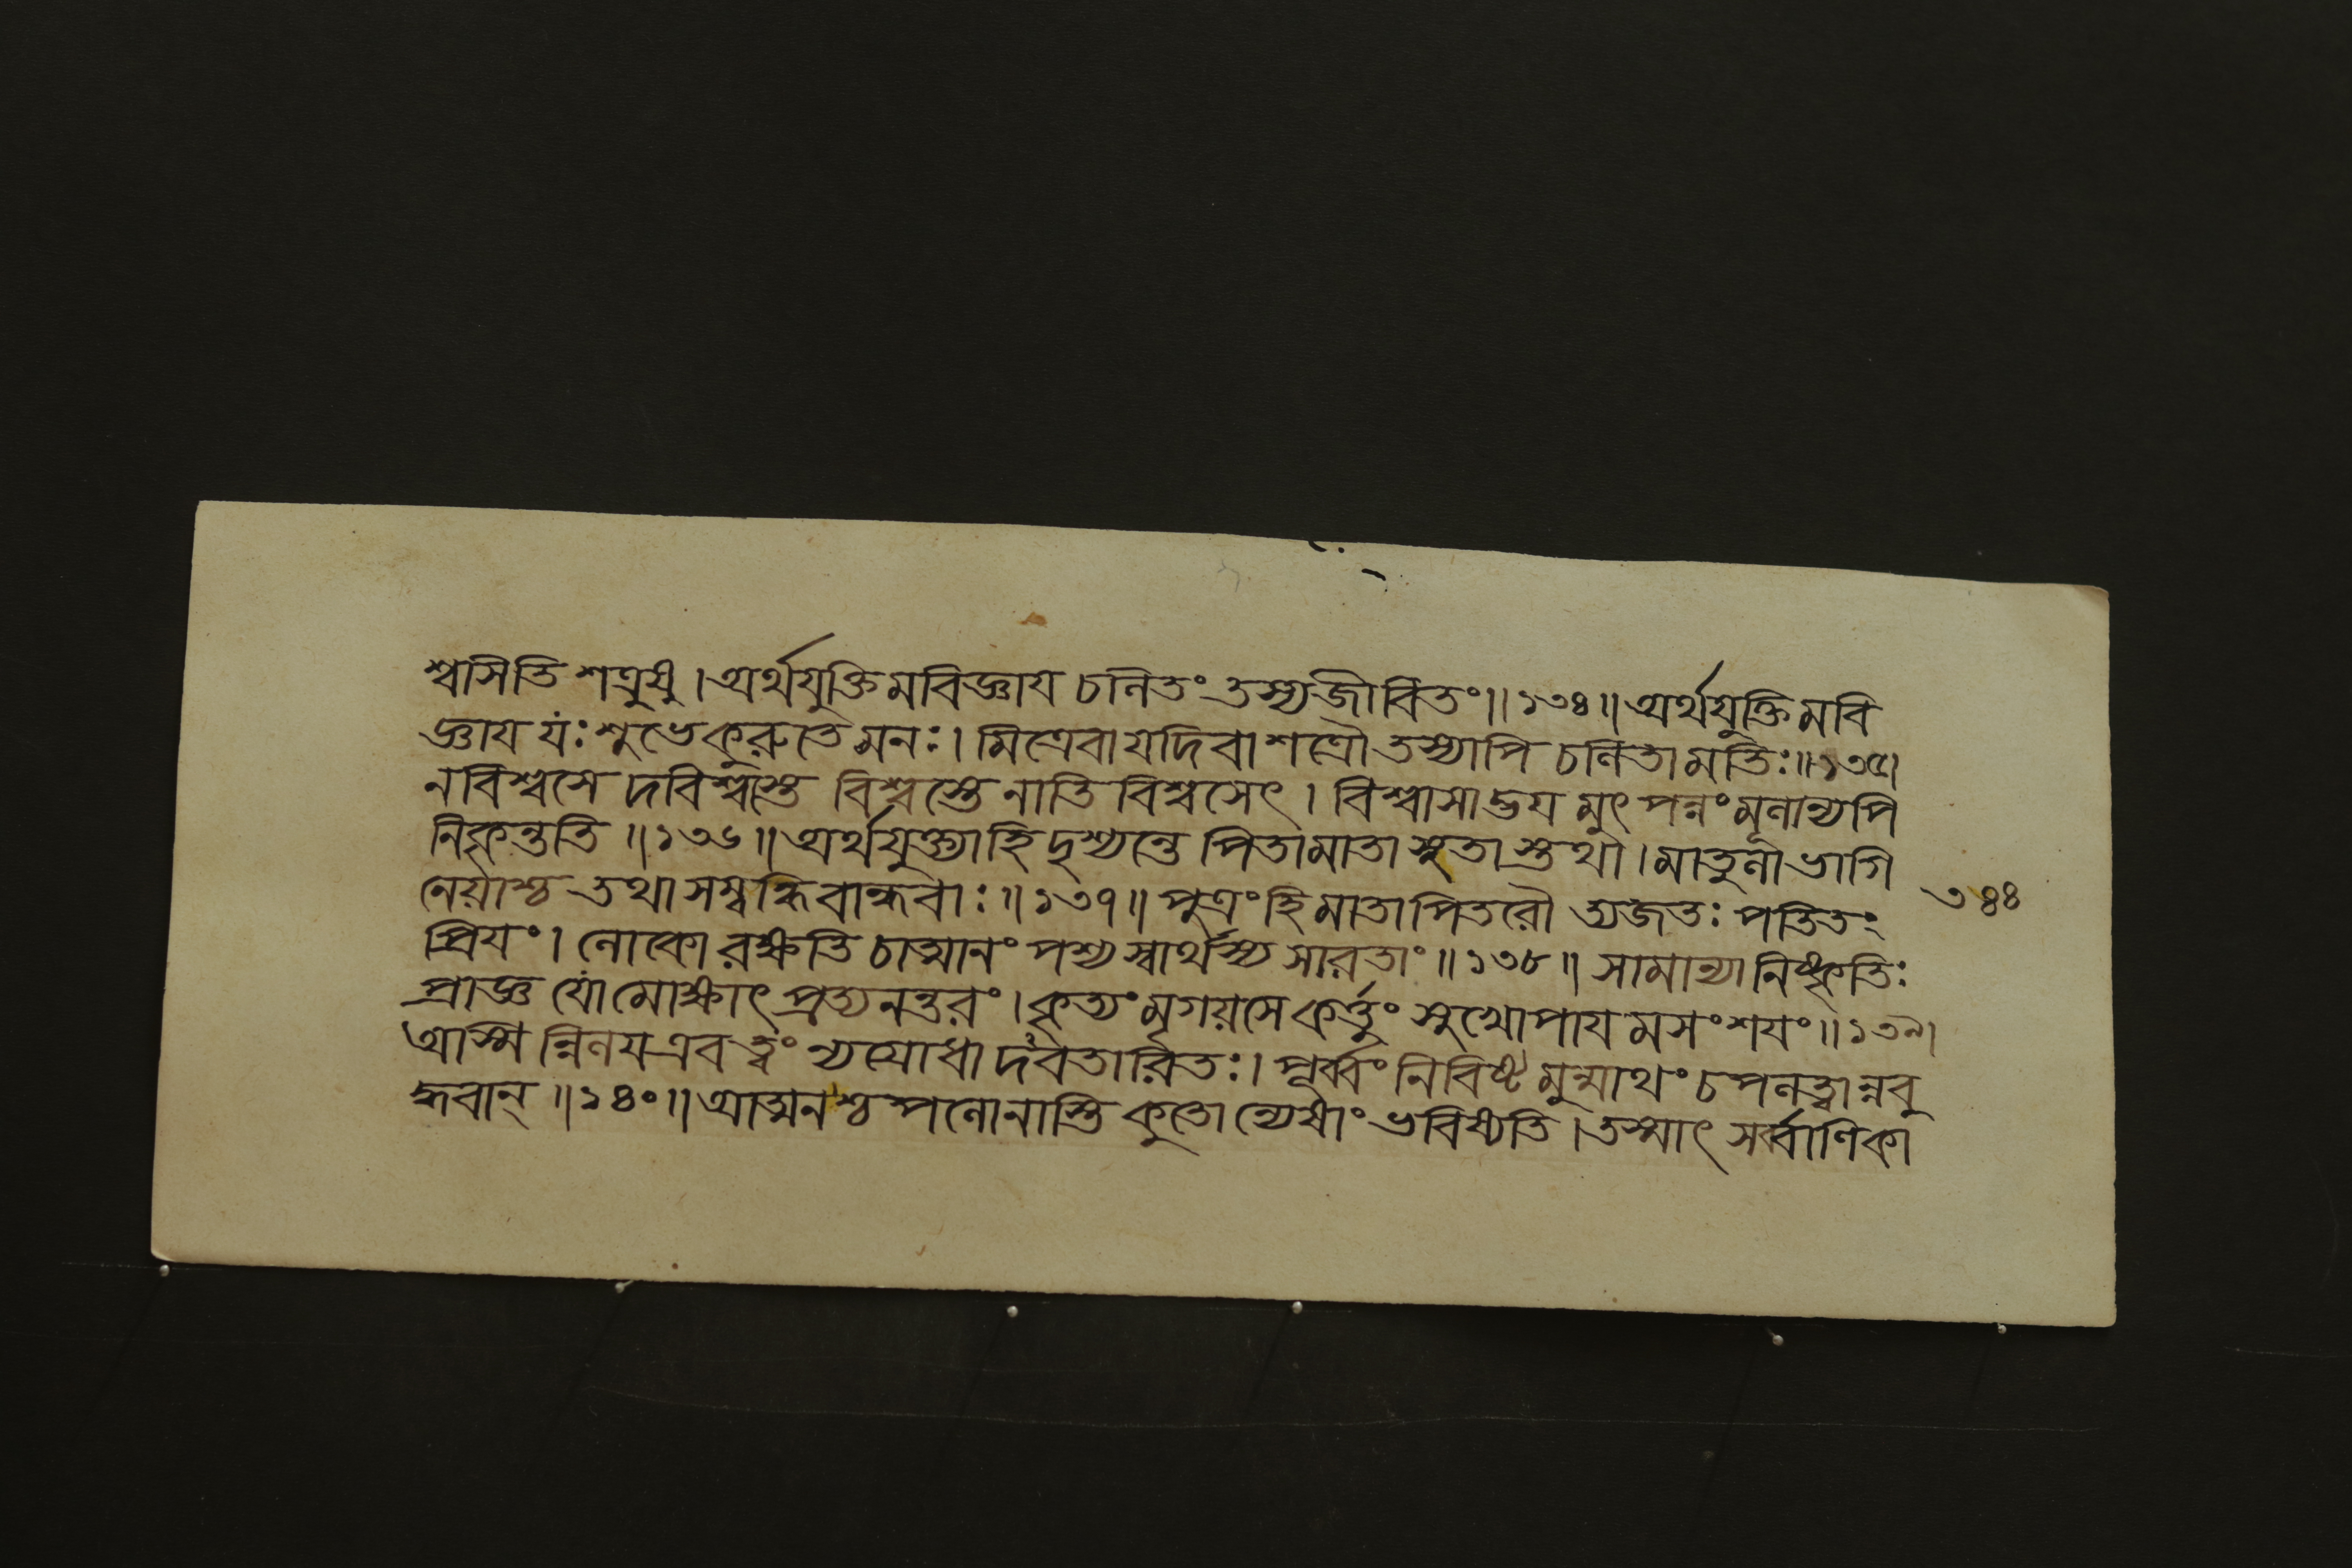 শ্বসিতি শত্রুষু । অর্থযুক্তিমবিজ্ঞায চলিতং তস্যজীবিতং ॥ ১৩৪ ॥ অর্থযুক্তিমবি
জ্ঞায যঃ শুভেকুরুতে মনঃ । মিত্রেবাযদিবাশত্রৌ তস্যাপি চলিতামতিঃ ॥ ১৩৫ ।
নবিশ্বসেদবিশ্বস্তে বিশ্বস্তেনাতিবিশ্বসেৎ । বিশ্বাসাদ্ভযমুৎপন্নং মূলান্যপি
নিকৃন্ততি ॥ ১৩৬ ॥ অর্থযুক্ত্যাহি দৃশ্যন্তে পিতামাতা সুতাস্তথা । মাতুলাভাগি
নেয়াশ্চ তথাসম্বন্ধিবান্ধবাঃ ॥ ১৩৭ ॥ পুত্রংহি মাতাপিতরৌ ত্যজতঃ পতিতং
৩৪৪
প্রিযং । লোকো রক্ষতি চাত্মানং পশ্য স্বার্থস্য সারতাং ॥ ১৩৮ ॥ সামান্যানিষ্কৃতিঃ
প্রাজ্ঞ যোমোক্ষাৎ প্রত্যনন্তরং । কৃত্যং মৃগয়সে কর্ত্তুং সুখোপাযমসংশযং ॥ ১৩৯ ।
অস্মিন্নিলযএব ত্বং ন্যগ্রোধাদবতারিতঃ । পূর্ব্বং নিবিষ্টমুন্মাথং চপলত্বান্নবু
দ্ধবান্ ॥ ১৪০ ॥ আত্মনশ্চপলোনাস্তি কুতোন্যেষাং ভবিষ্যতি । তস্মাৎ সর্ব্বাণিকা